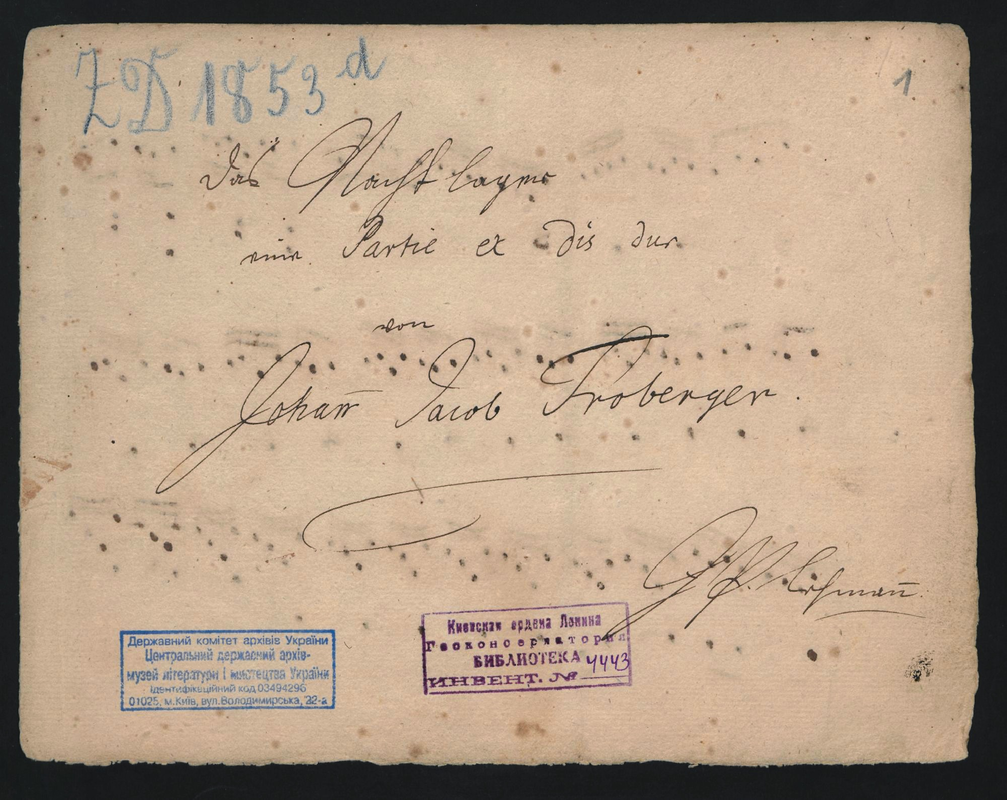 ZD 1853 d
1
Das Nachtlager
eine Partie ex dis dur
von
Johann Jacob Froberger.
Державний комітет архівів України
Центральний державний архів-
музей літератури і мистецтва України
Ідентифікаційний код 03494296
01025, м.Київ, вул.Володимирська, 22-а
Киевская ордена Ленина
Госконсерватория
БИБЛИОТЕКА
ИНВЕНТ. № 4443